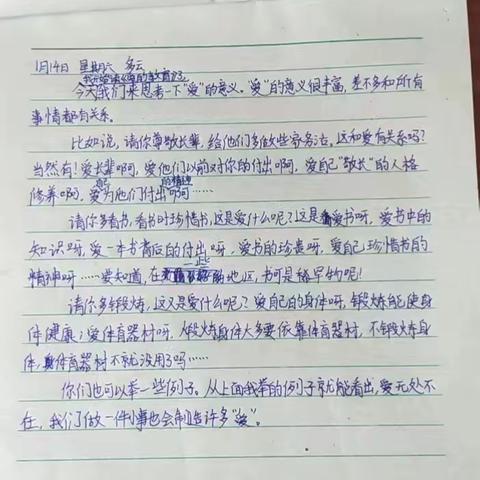 1月14日 星期六 多云
今天我们来思考一下"爱"的意义。"爱"的意义很丰富，差不多和所有
事情都有关系。
比如说，请你尊敬长辈，给他们多做些家务活。这和爱有关系吗？
当然有！爱长辈啊，爱他们以前对你的付出啊，爱自己"敬长"的人格
修养啊，爱为他们付出的精神啊……
请你多看书，看书时珍惜书，这是爱什么呢？这是爱书呀，爱书中的
知识呀，爱一本书背后的付出呀，爱书的珍贵呀，爱自己珍惜书的
精神呀……要知道，在一些地区，书可是稀罕物呢！
请你多锻炼，这又是爱什么呢？爱自己的身体呀，锻炼能使身
体健康；爱体育器材呀，锻炼身体大多要依靠体育器材，不锻炼身
体，体育器材不就没用了吗……
你们也可以举一些例子。从上面我举的例子就能看出，爱无处不
在，我们做一件小事也会制造许多"爱"。